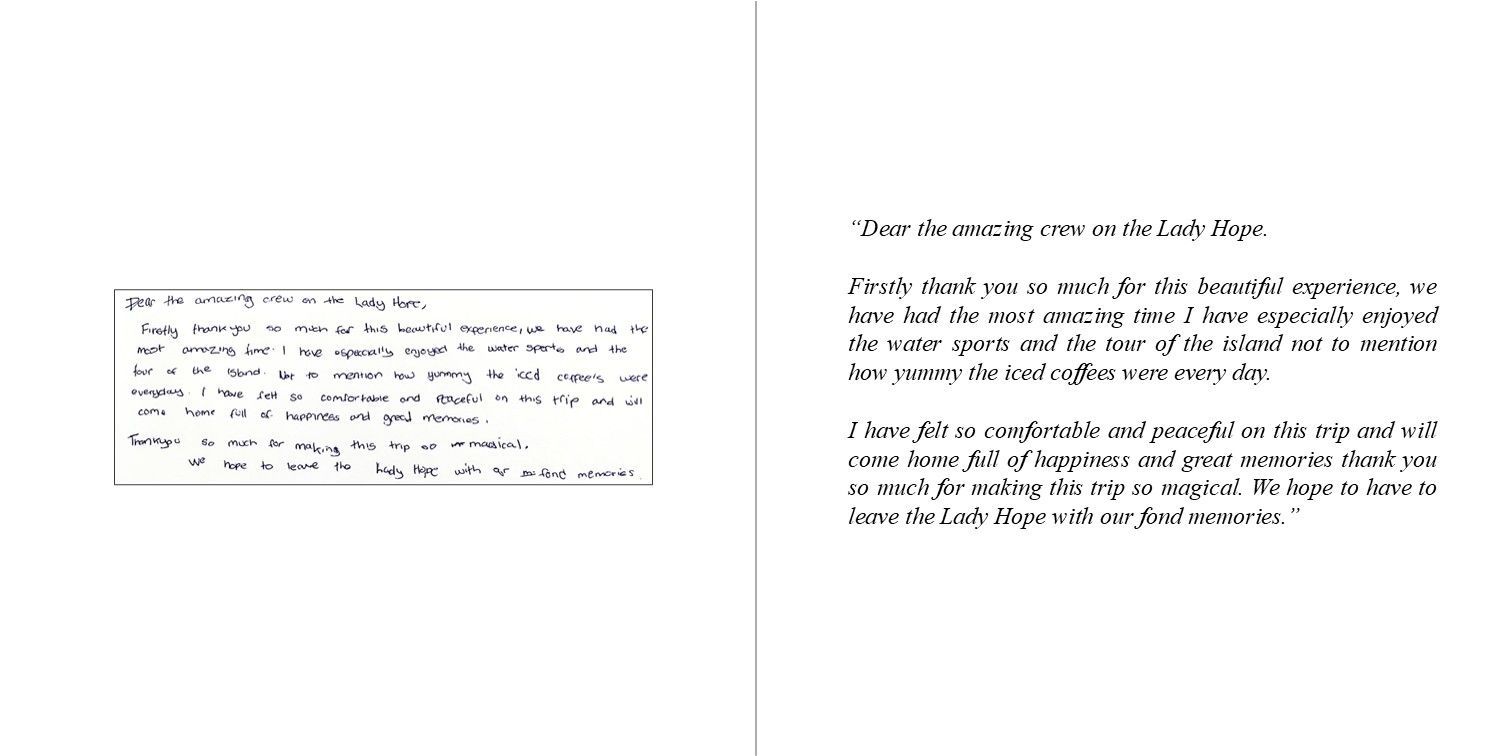 Dear the amazing crew on the Lady Hope,
Firstly thankyou so much for this beautiful experience, we have had the
most amazing time. I have especially enjoyed the water sports and the
tour of the island. Not to mention how yummy the iced coffee's were
everyday. I have felt so comfortable and peaceful on this trip and will
come home full of happiness and great memories.
Thankyou so much for making this trip so magical.
We hope to leave the Lady Hope with fond memories.
“Dear the amazing crew on the Lady Hope.
Firstly thank you so much for this beautiful experience, we
have had the most amazing time I have especially enjoyed
the water sports and the tour of the island not to mention
how yummy the iced coffees were every day.
I have felt so comfortable and peaceful on this trip and will
come home full of happiness and great memories thank you
so much for making this trip so magical. We hope to have to
leave the Lady Hope with our fond memories.”